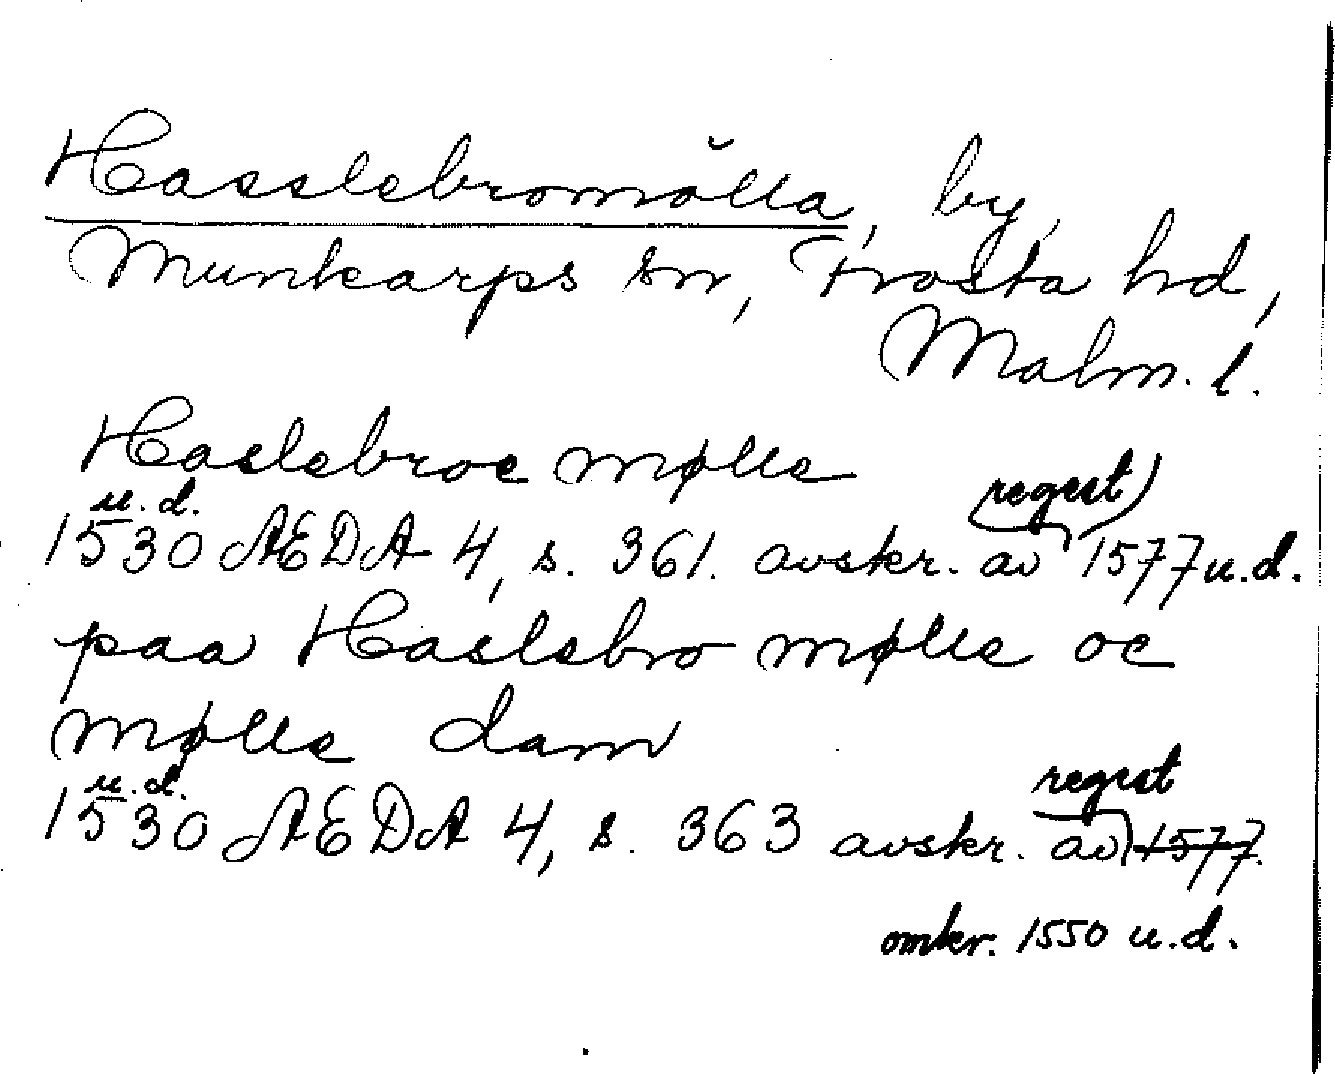 Hasslebromölla, by,
Munkarps sn, Frosta hd,
Malm. l.
Haslebroe mølle
u.d. regest)
1530 AEDA 4, s. 361. avskr. av 1577 u.d.
paa Haslebro mølle oc
mølle dam
u.d. regest
1530 AEDA 4, s. 363 avskr. av 1577.
omkr. 1550 u.d.